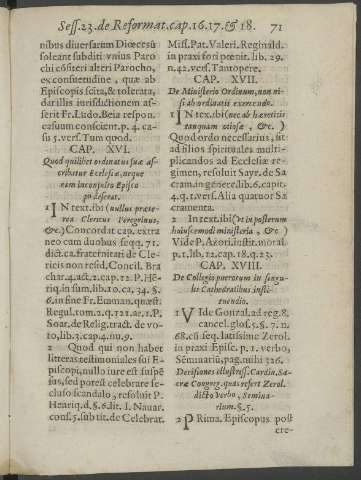 Sess.23.de Reformat.cap.16.17.& 18. 71
nibus diuersarum Diœcesũ
soleant subditi vnius Paro
chi cõfiteri alteri Parocho,
ex consuetudine, quæ ab
Episcopis scita, & tolerata,
dat illis iurisdictionem as-
serit Fr. Ludo. Beia respon.
casuum conscient. p. 4. ca-
su 5. vers. Tum quod.
CAP. XVI.
Quod quilibet ordinatus suæ as-
cribatur Ecclesiæ, neque
eam inconsulto Episco
po deserat.
1 IN text. ibi (nullus præte-
rea Clericus Peregrinus,
&c.) Concordat cap. extra
neo cum duobus seqq. 71.
dist. ca. fraternitati de Cle-
ricis non resid. Concil. Bra
char. 4. act. 2. cap. 12. P. He-
riq. in sum. lib. 10. ca. 34. §.
6. in fine Fr. Emman. quæst.
Regul. tom. 2. q. 121. ar. 1. P.
Soar. de Relig. tract. de vo-
to, lib. 3. cap. 4. nu. 9.
2 Quod qui non habet
litteras testimoniales sui E-
piscopi, nullo iure est suspẽ
sus, sed potest celebrare se-
cluso scandalo, resoluit P.
Henriq. d. §. 6. lit. I. Nauar.
cons. 5. sub tit. de Celebrat.
Miss. Pat. Valeri. Reginald.
in praxi fori pœnit. lib. 29.
n. 42. vers. Tantopere.
CAP. XVII.
De Ministerio Ordinum, non ni-
si ab ordinatis exercendo.
1 IN text. ibi (nec ab hæreticis
tanquam otiosæ, &c.)
Quod ordo necessarius, sit
ad filios spirituales multi-
plicandos ad Ecclesiæ re-
gimen, resoluit Sayr. de Sa
cram. in genere lib. 6. capit.
4. q. 1. vers. Alia quatuor Sa
cramenta.
2 In text. ibi (Vt in posterum
huiuscemodi ministeria, &c)
Vide P. Azori. instit. moral.
p. 1. lib. 12. cap. 18. q. 23.
CAP. XVIII.
De Collegio puerorum in singu-
lis Cathedralibus insti-
tuendio.
1 VIde Gonzal. ad reg. 8.
cancel. glos. 5. §. 7. n.
68. cũ seq. latissime Zerol.
in praxi Episc. p. 1. verbo,
Seminariũ, pag. mihi 326.
Decisiones illustriss. Cardin. Sa-
cræ Congreg. quas refert Zerol.
dicto verbo, Semina-
rium. §. 5.
2 PRima. Episcopus post
ere-